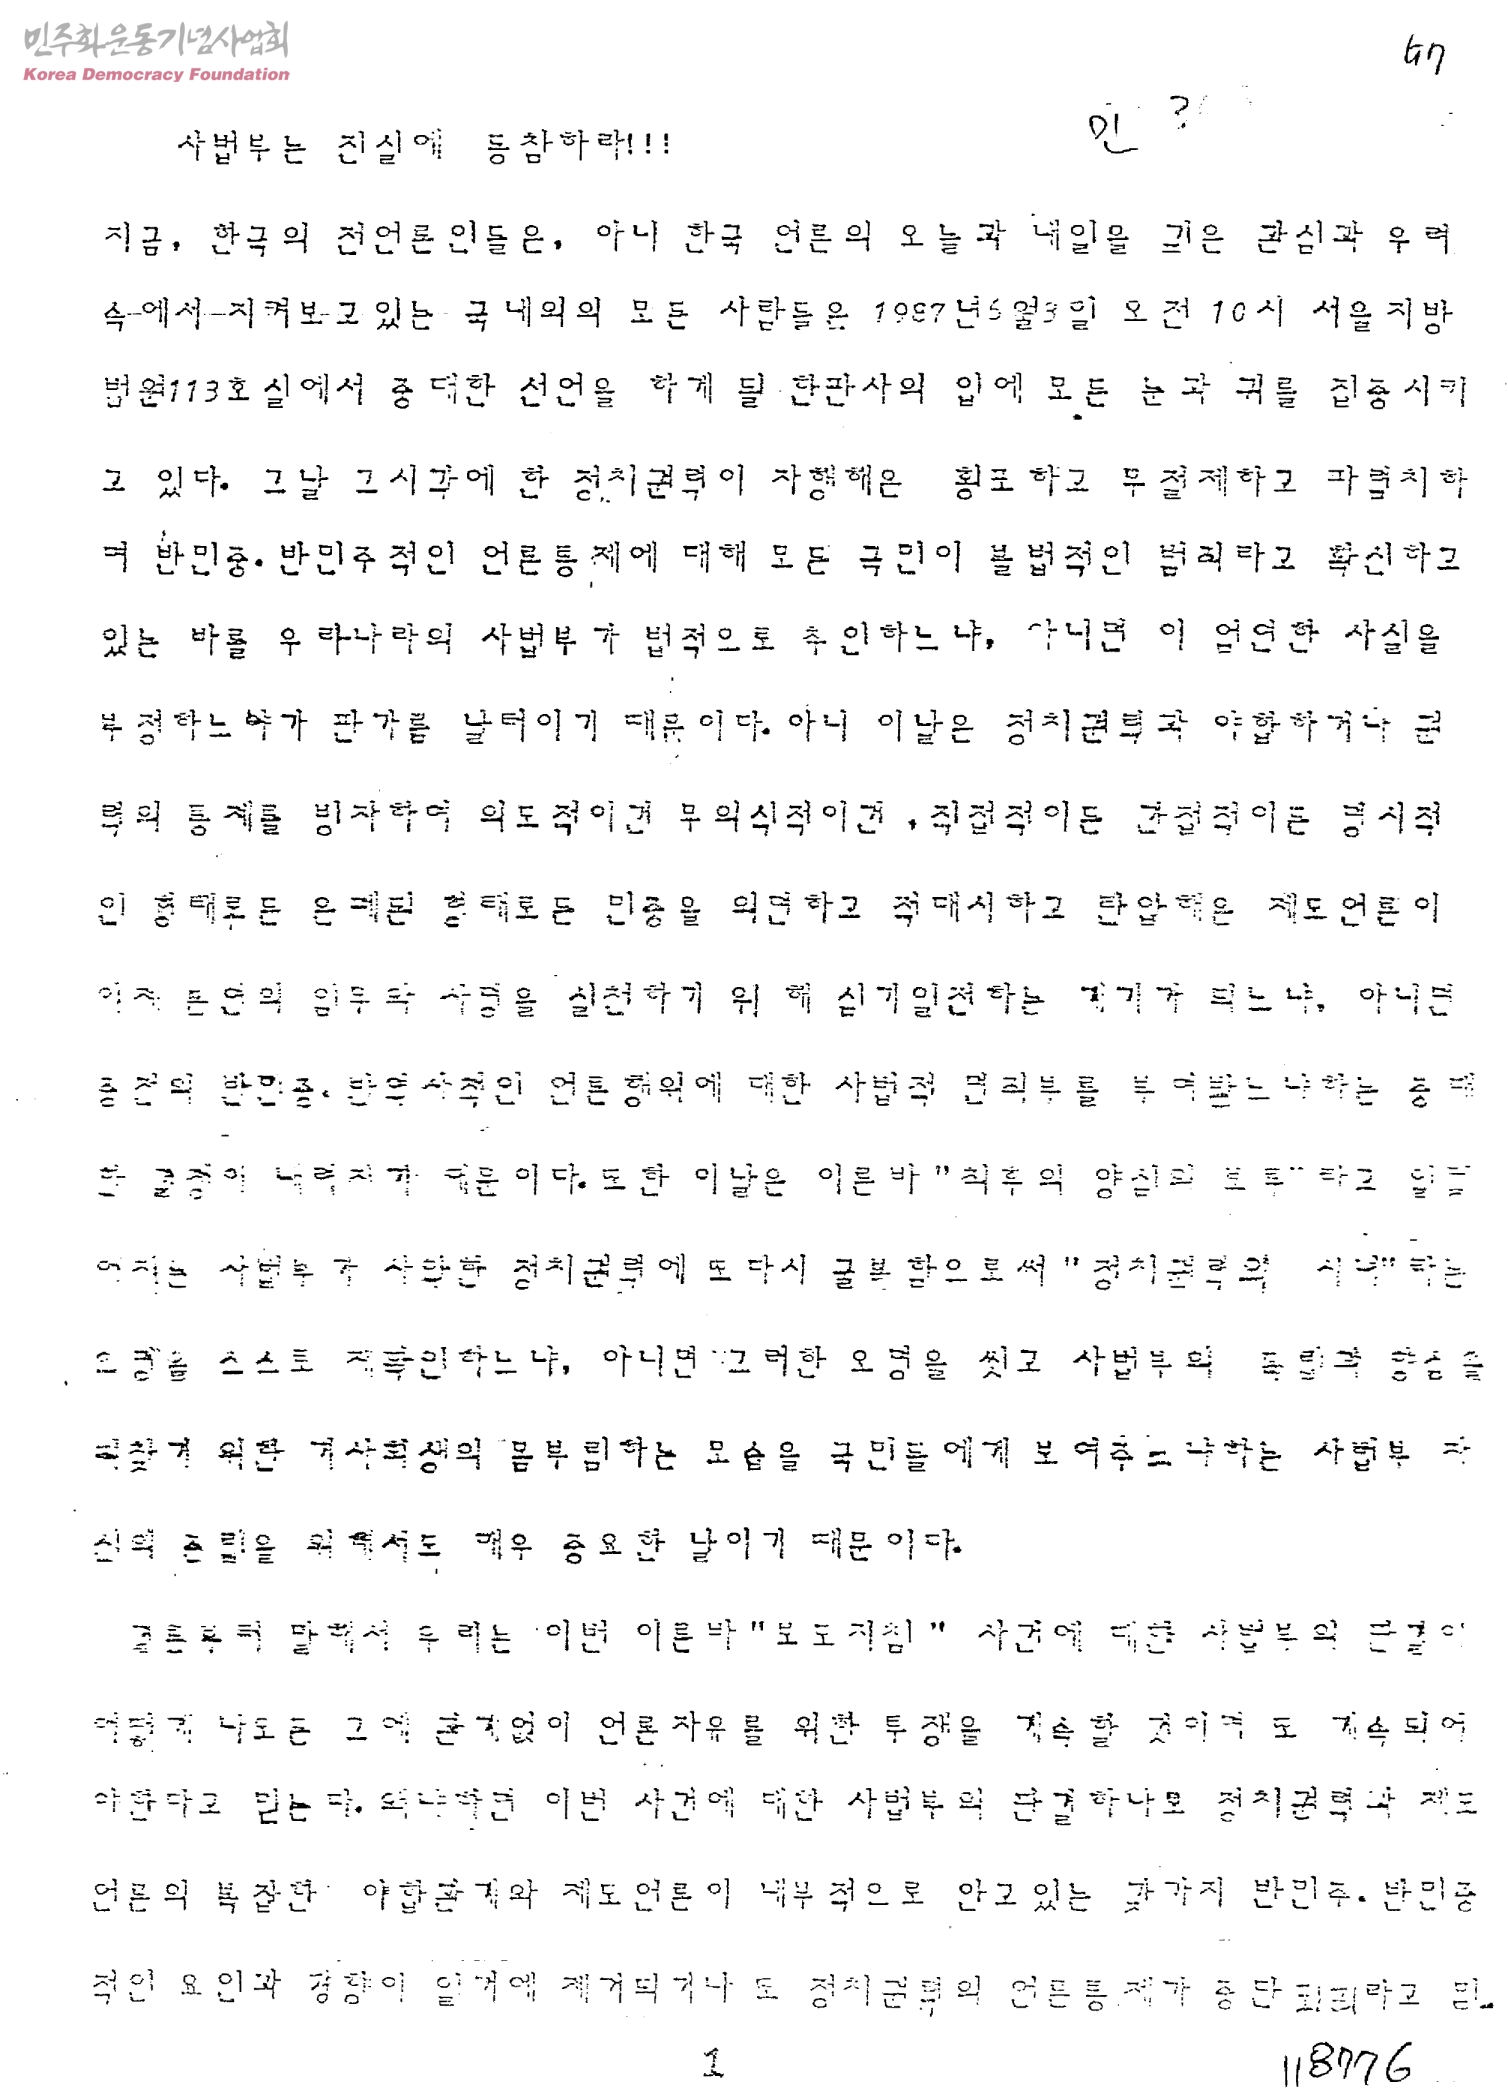 민주화운동기념사업회
Korea Democracy Foundation
민 ?
사법부는 진실에 동참하라!!!
지금, 한국의 전언론인들은, 아니 한국 언론의 오늘과 내일을 깊은 관심과 우려
속에서 지켜보고있는 국내외의 모든 사람들은 1987년6월3일 오전 10시 서울지방
법원113호실에서 중대한 선언을 하게 될 한판사의 입에 모든 눈과 귀를 집중시키
고 있다. 그날 그시각에 한 정치권력이 자행해온 횡포하고 무절제하고 파렴치하
며 반민중.반민주적인 언론통제에 대해 모든 국민이 불법적인 범죄라고 확신하고
있는 바를 우리나라의 사법부가 법적으로 추인하느냐, 아니면 이 엄연한 사실을
부정하느냐가 판가름 날터이기 때문이다. 아니 이날은 정치권력과 야합하거나 권
력의 통제를 빙자하여 의도적이건 무의식적이건 ,직접적이든 간접적이든 명시적
인 형태로든 은폐된 형태로든 민중을 외면하고 적대시하고 탄압해온 제도언론이
이제 본연의 임무와 사명을 실천하기 위해 심기일전하는 계기가 되느냐, 아니면
종전의 반민중.반역사적인 언론행위에 대한 사법적 면죄부를 부여받느냐하는 중대
한 결정이 내려지기 때문이다. 또한 이날은 이른바 "최후의 양심의 보루" 라고 일컬
어지는 사법부가 사악한 정치권력에 또다시 굴복함으로써 "정치권력의 시녀"라는
오명을 스스로 재확인하느냐, 아니면 그러한 오명을 씻고 사법부의 독립과 양심을
되찾기 위한 기사회생의 몸부림하는 모습을 국민들에게 보여주느냐하는 사법부 자
신의 존립을 위해서도 매우 중요한 날이기 때문이다.
결론부터 말해서 우리는 이번 이른바 "보도지침" 사건에 대한 사법부의 판결이
어떻게 나오든 그에 관계없이 언론자유를 위한 투쟁을 계속할 것이며 또 계속되어
야한다고 믿는다. 왜냐하면 이번 사건에 대한 사법부의 판결하나로 정치권력과 제도
언론의 복잡한 야합관계와 제도언론이 내부적으로 안고있는 갖가지 반민주.반민중
적인 요인과 경향이 일거에 제거되거나 또 정치권력의 언론통제가 중단되리라고 믿
1
118776